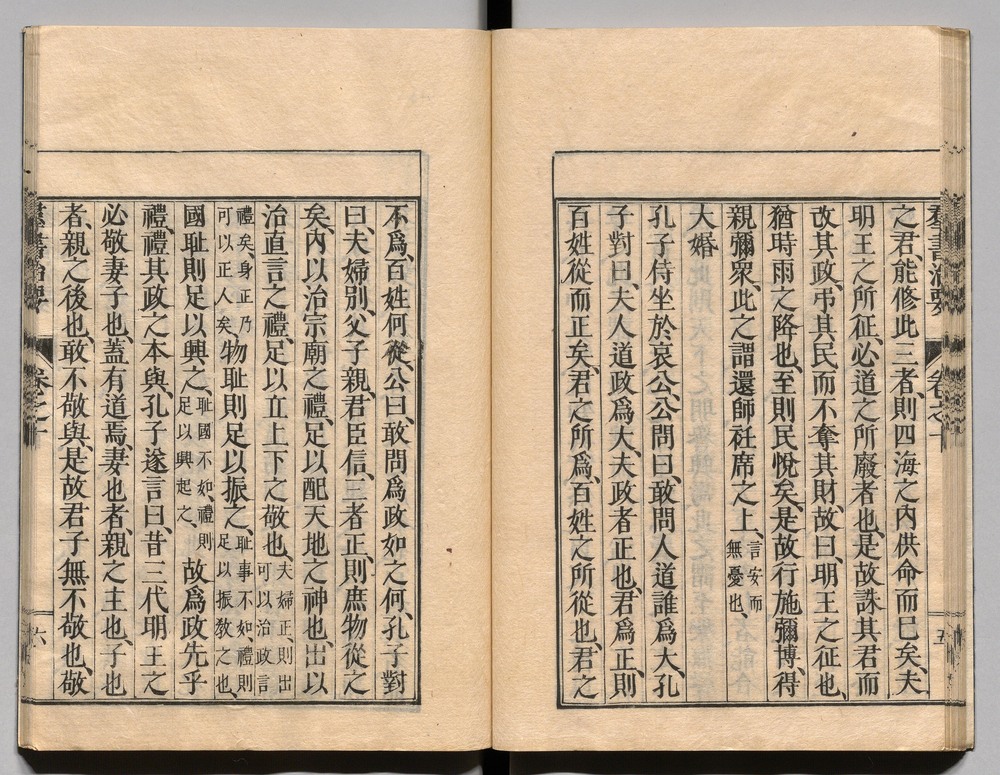 之君、能修此三者、則四海之内供命而已矣、夫
明王之所征、必道之所廢者也、是故誅其君而
改其政、弔其民而不奪其財、故曰、明王之征也、
猶時雨之降也、至則民悅矣、是故行施彌博、得
親彌衆、此之謂還師衽席之上、言安而無憂也、
大婚
孔子侍坐於哀公、公問曰、敢問人道誰爲大、孔
子對曰、夫人道政爲大、夫政者正也、君爲正、則
百姓從而正矣、君之所爲、百姓之所從也、君之
不爲、百姓何從、公曰、敢問爲政如之何、孔子對
曰、夫婦別、父子親、君臣信、三者正、則庶物從之
矣、内以治宗廟之禮、足以配天地之神也、出以
治直言之禮、足以立上下之敬也、夫婦正、則出可以治政言
禮矣、身正乃可以正人矣、物耻則足以振之、耻事不如禮、則足以振敎之也、
國耻則足以興之、耻國不如禮、則足以興起之、故爲政先乎
禮、禮其政之本與、孔子遂言曰、昔三代明王之
必敬妻子也、蓋有道焉、妻也者、親之主也、子也
者、親之後也、敢不敬與、是故君子無不敬也、敬
羣書治要
卷之十
五
六